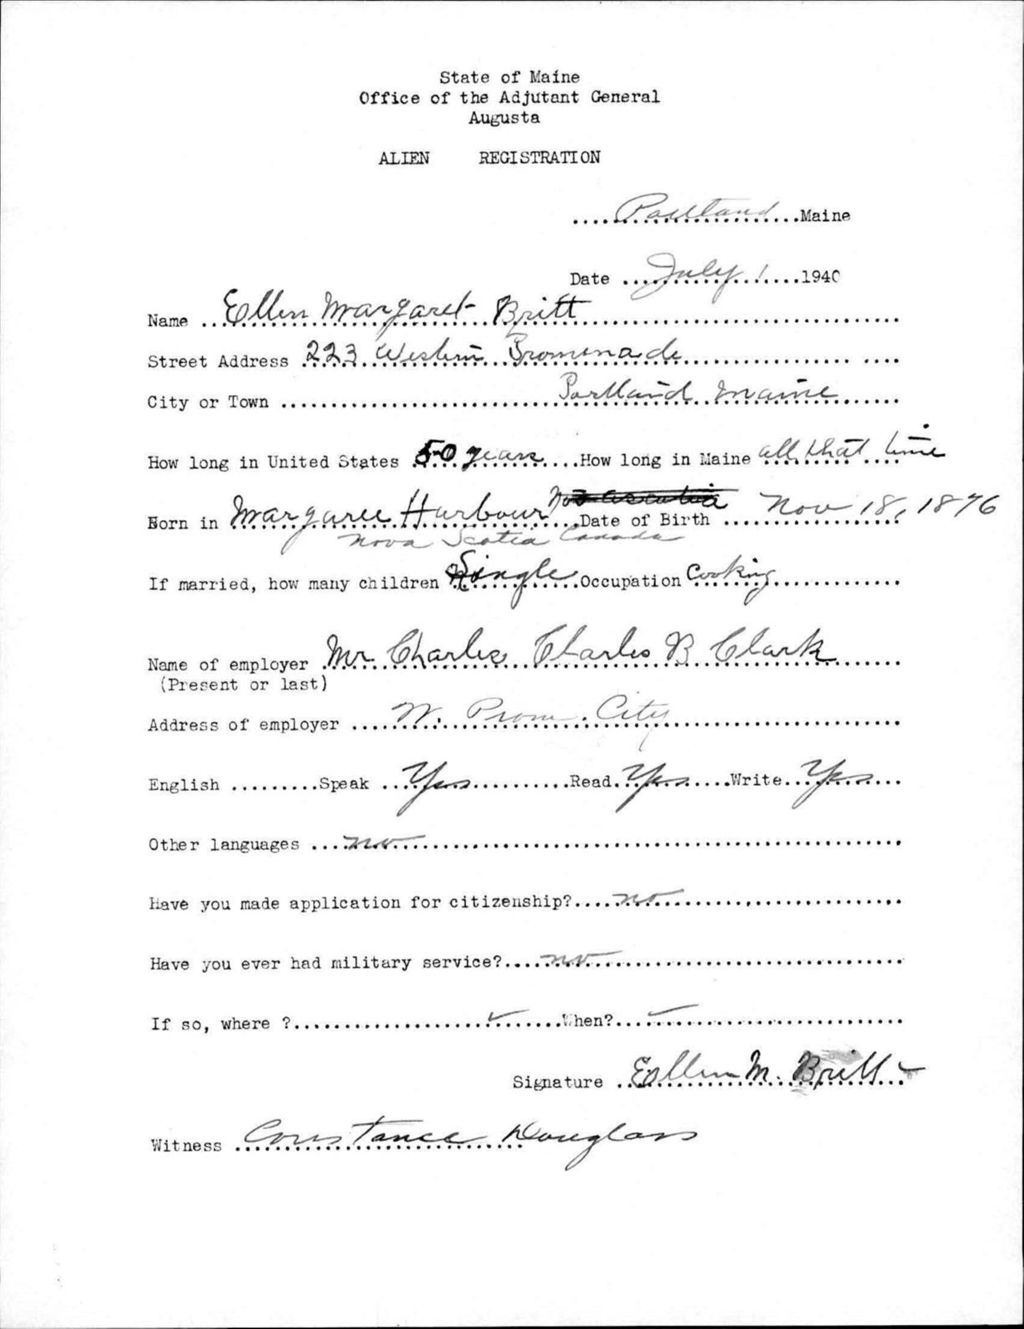 State of Maine
Office of the Adjutant General
Augusta
ALIEN REGISTRATION
....Portland....Maine
Date ....July 1....1940
Name ...Ellen Margaret Britt...
Street Address 223 Western Promenade
City or Town ....Portland Maine....
How long in United States 50 years....How long in Maine all that time
Born in Margaree Harbour ....Date of Birth ....Nov 18, 1876
Nova Scotia Canada
If married, how many children Single....Occupation Cooking....
Name of employer Mr. Charles Charles B Clark
(Present or last)
Address of employer ....W. Prom. City....
English .........Speak ...Yes...........Read..Yes.....Write...Yes...
Other languages ....no....
Have you made application for citizenship?....no....
Have you ever had military service?....no....
If so, where ?....✓....When?....✓....
Signature ..Ellen M. Britt
Witness ..Constance Douglass